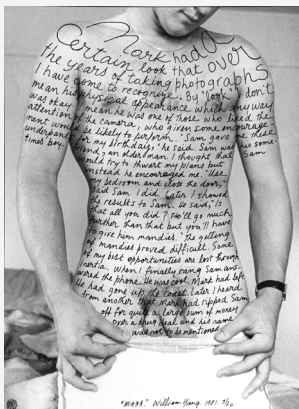 Mark had A
Certain look that over
the years of taking photographs
I have come to recognize. By "look" I don't
mean his physical appearance which anyway
was okay. I mean he was one of those who liked the
attention of the camera, who given some encourage
ment would be likely to perform. "Sam gave him
underpants for my Birthday," he said. Sam was his some-
times boy-friend, an older man I thought that Sam
would try to thwart my plans but
instead he encouraged me. "Use
my bedroom and close the door,"
said Sam. I did. Later I showed
the results to Sam. He said, "Is
that all you did? He'll go much
further than that but you'll have
to give him mandies." The getting
of mandies proved difficult. Some
of my best opportunities are lost through
inertia. When I finally rang Sam ans-
wered the phone. He was cool. Mark had left
He had gone up the coast. Later I heard
from another that Mark had ripped Sam
off for quite a large sum of money
over a drug deal and his name
was not to be mentioned.
"MARK." William Yang. 1981.